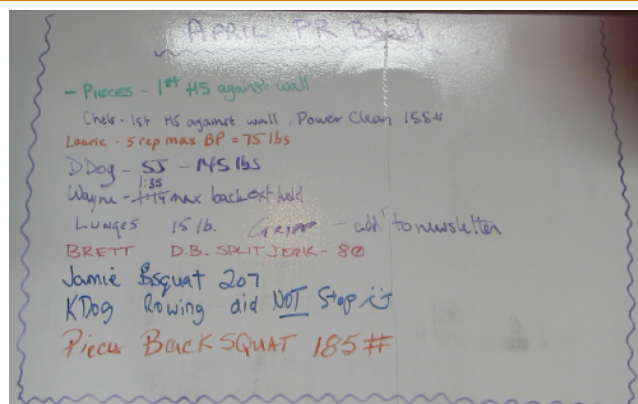 APRIL PR Board
- Pieces - 1st HS against wall
Chels - 1st HS against wall, Power Clean 155#
Laurie - 5 rep max BP = 75 lbs
DDog - SJ - 145 lbs
1:35
Wayne - max back ext hold
LUNGES 15 lb. - add to newsletter
BRETT D.B. SPLIT JERK - 80
Jamie Bsquat 207
KDog Rowing did NOT Stop
Pieces BACK SQUAT 185#